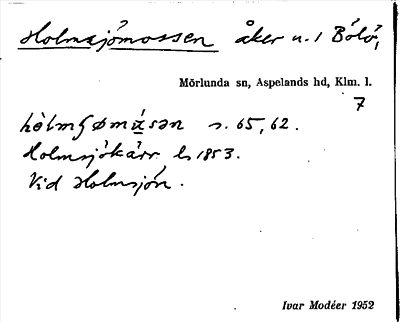 Holmsjömossen åker n. 1 Bölö,
Mörlunda sn, Aspelands hd, Klm. l.
7
hòlmʃømåsən s. 65, 62.
Holmsjökärr ls 1853.
Vid Holmsjön.
Ivar Modéer 1952